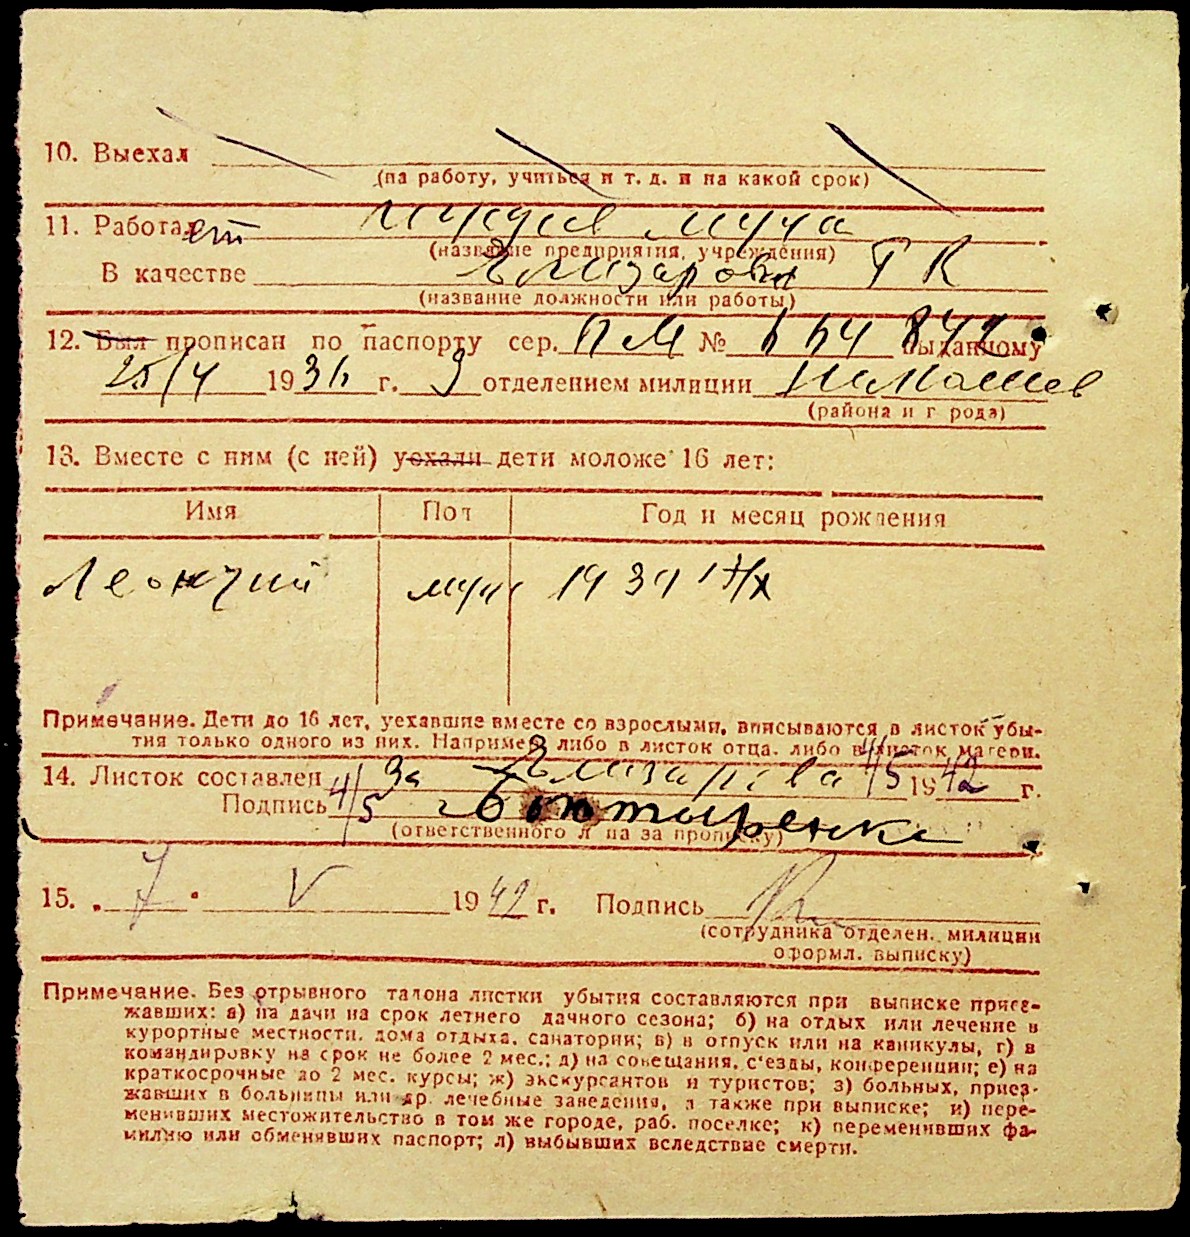 10. Выехал
(на работу, учиться и т. д. и на какой срок)
11. Работает мужа
(название предприятия, учреждения)
В качестве Елизарова Г К
(название должности или работы)
12. Был прописан по паспорту сер. П М № 664 842 выданному
25/4 1936 г. 9 отделением милиции
(района и г рода)
13. Вместе с ним (с ней) уехали дети моложе 16 лет:
Имя Пол Год и месяц рождения
Леонтий муж 1939 17/X
Примечание. Дети до 16 лет, уехавшие вместе со взрослыми, вписываются в листок убы-
тия только одного из них. Например либо в листок отца, либо в листок матери.
14. Листок составлен За Елизарова 4/5 1942 г.
Подпись 4/5 Бонтаренко
(ответственного л па за прописку)
15. 7 V 1942 г. Подпись
(сотрудника отделен. милиции
оформл. выписку)
Примечание. Без отрывного талона листки убытия составляются при выписке приез-
жавших: а) на дачи на срок летнего дачного сезона; б) на отдых или лечение в
курортные местности, дома отдыха, санатории; в) в отпуск или на каникулы, г) в
командировку на срок не более 2 мес.; д) на совещания, с'езды, конференции; е) на
краткосрочные до 2 мес. курсы; ж) экскурсантов и туристов; з) больных, приез-
жавших в больницы или др. лечебные заведения, а также при выписке; и) пере-
менивших местожительство в том же городе, раб. поселке; к) переменивших фа-
милию или обменявших паспорт; л) выбывших вследствие смерти.